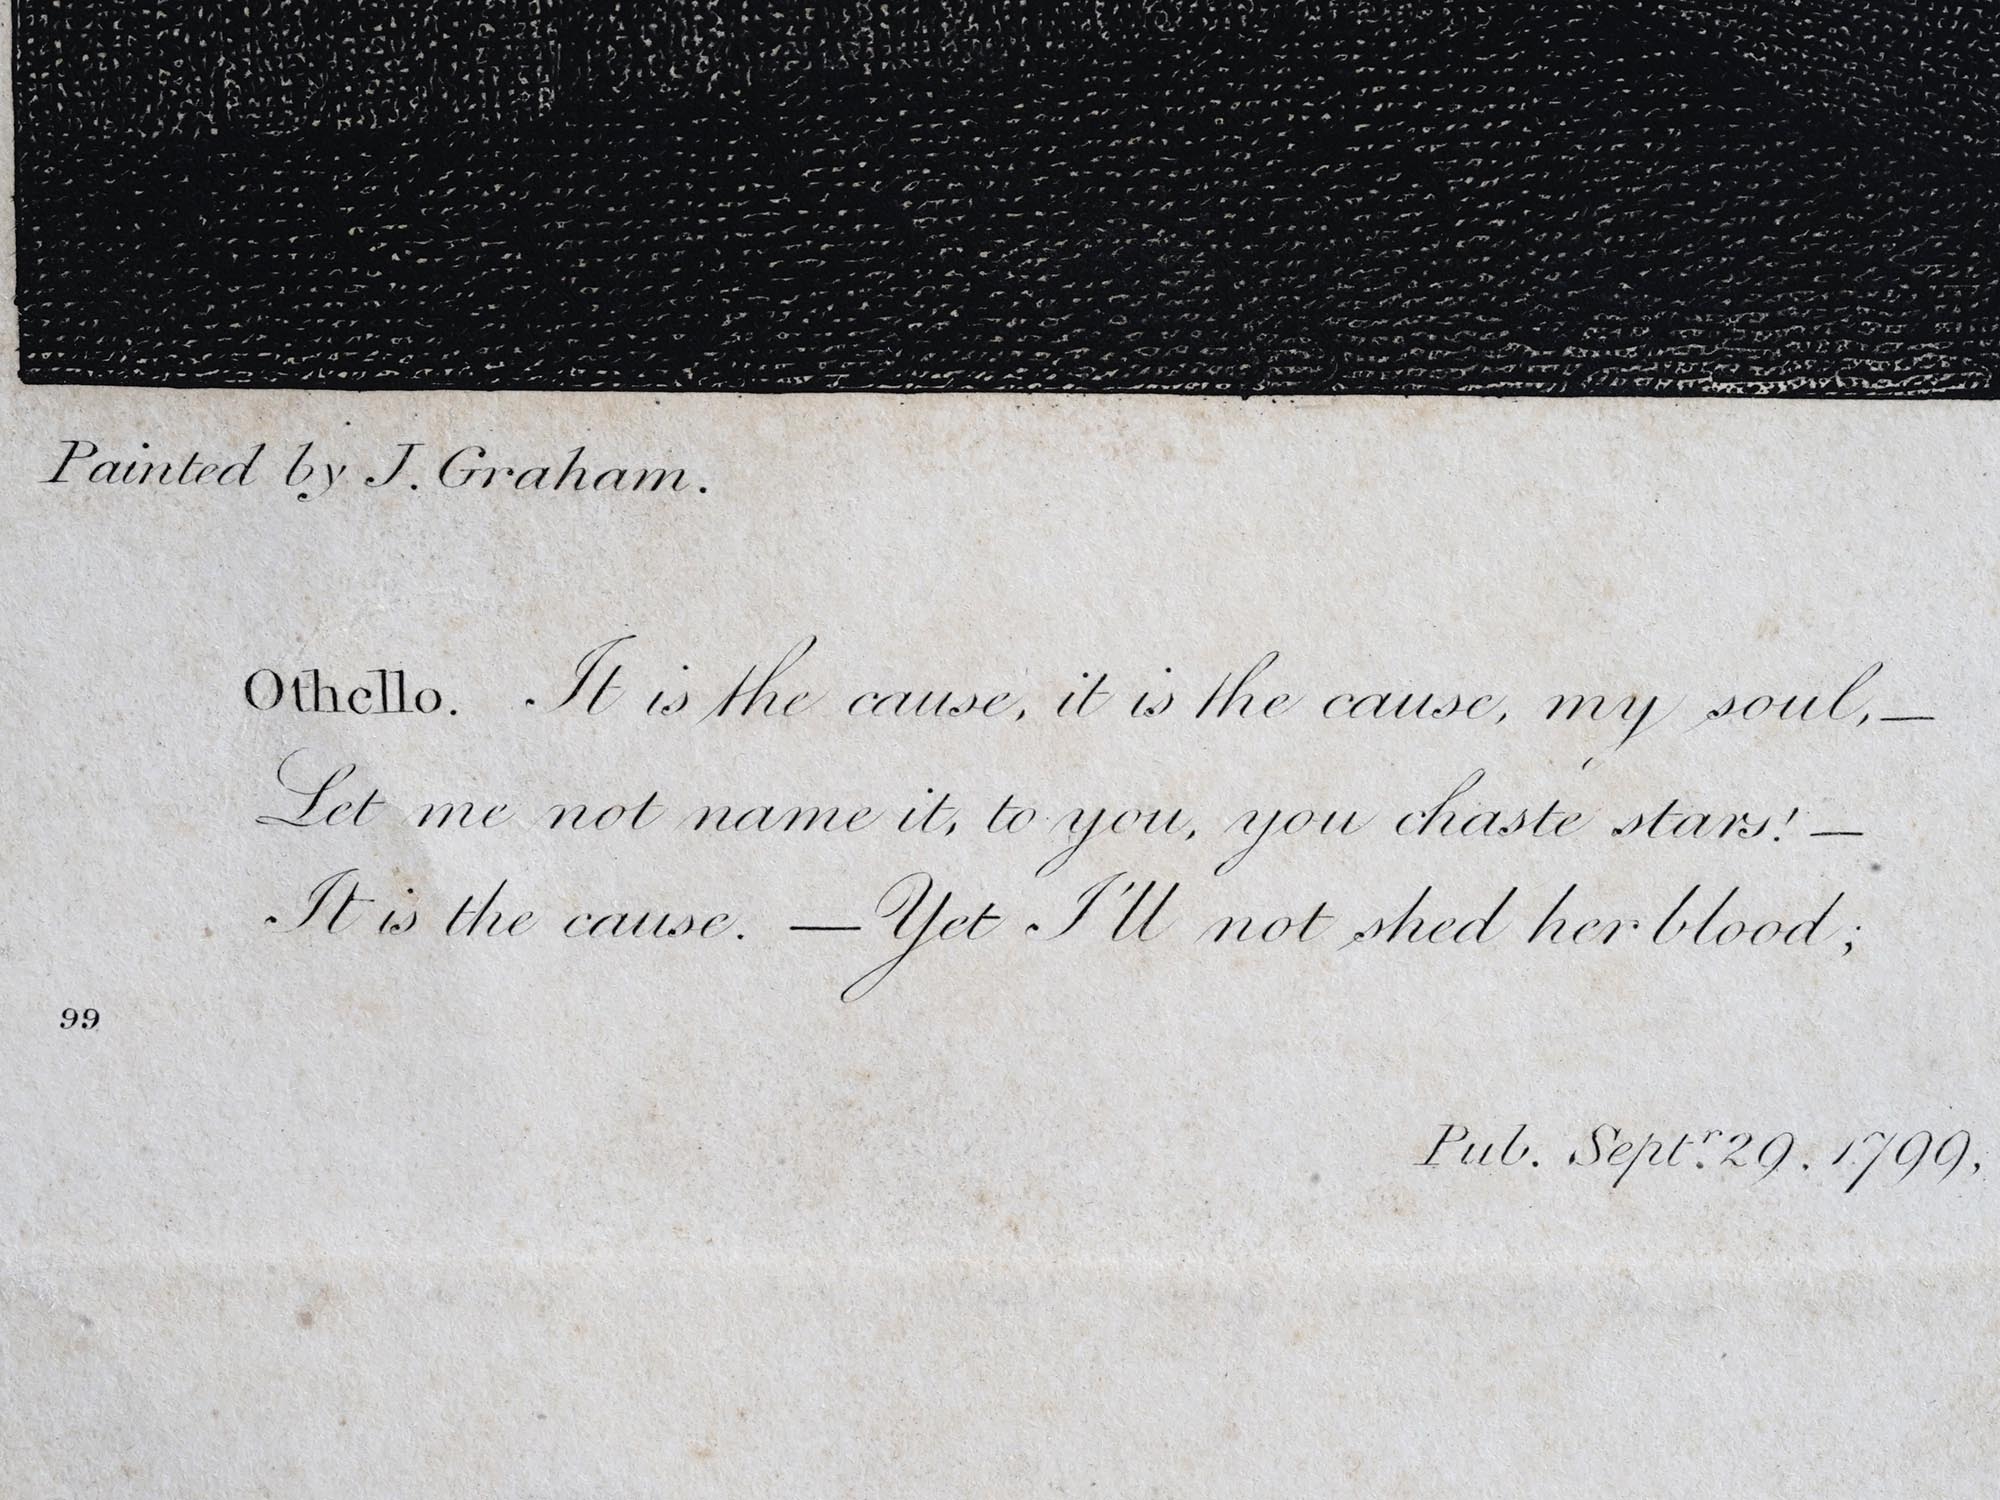 Painted by J. Graham.
Othello. It is the cause, it is the cause, my soul,—
Let me not name it, to you, you chaste stars! —
It is the cause. — Yet I'll not shed her blood;
99
Pub. Septr. 29. 1799,